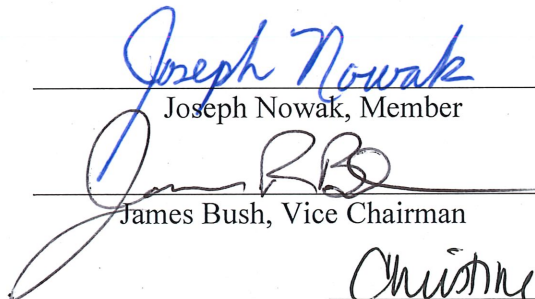 Joseph Nowak
Joseph Nowak, Member
James R B
James Bush, Vice Chairman
Christine